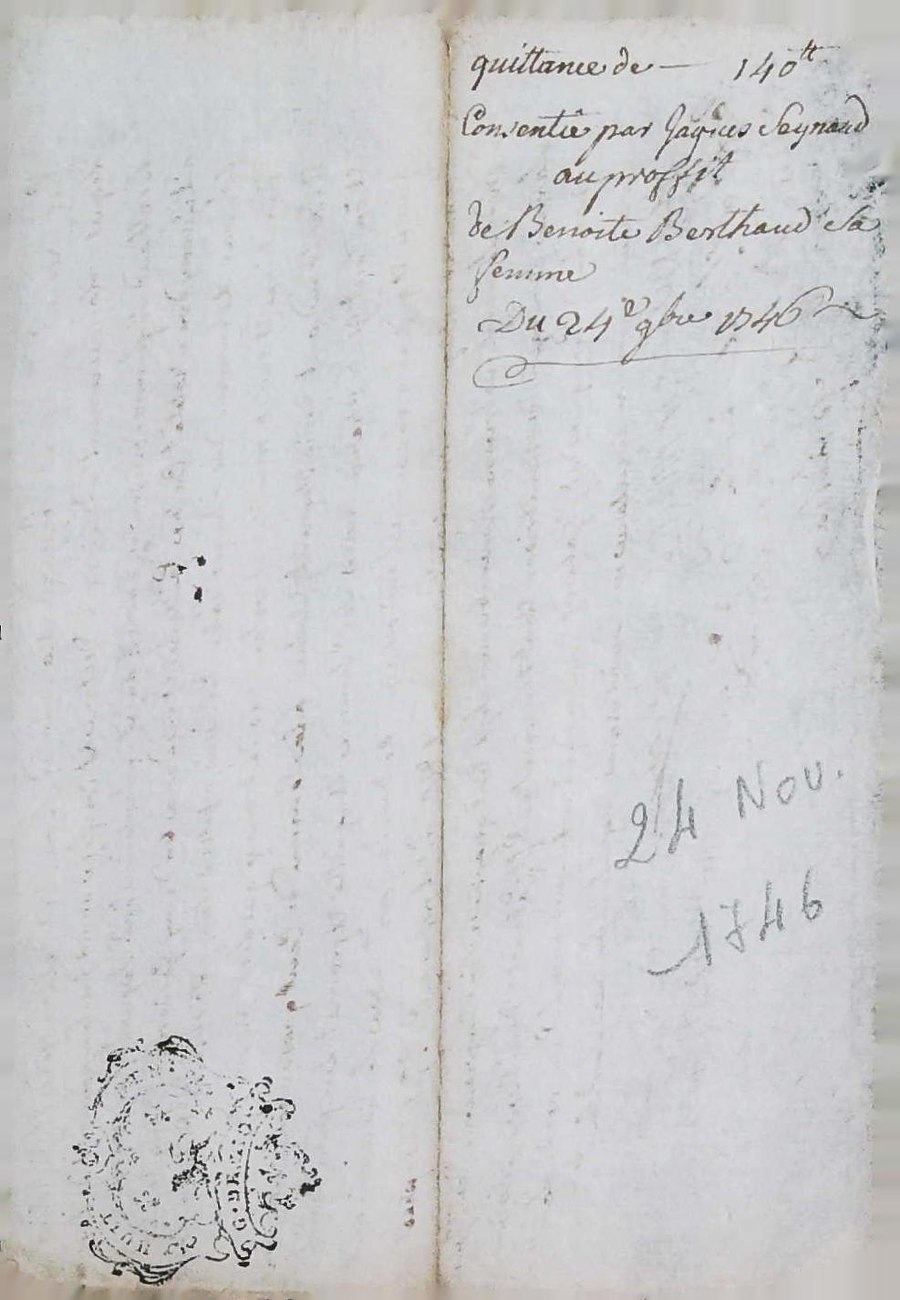 quittance de — 140tt
Consentie par Jaques Seynaud
au proffit
de Benoite Berthaud Sa
femme
Du 24e 9bre 1746
24 Nov.
1746
HUIT
G. DE